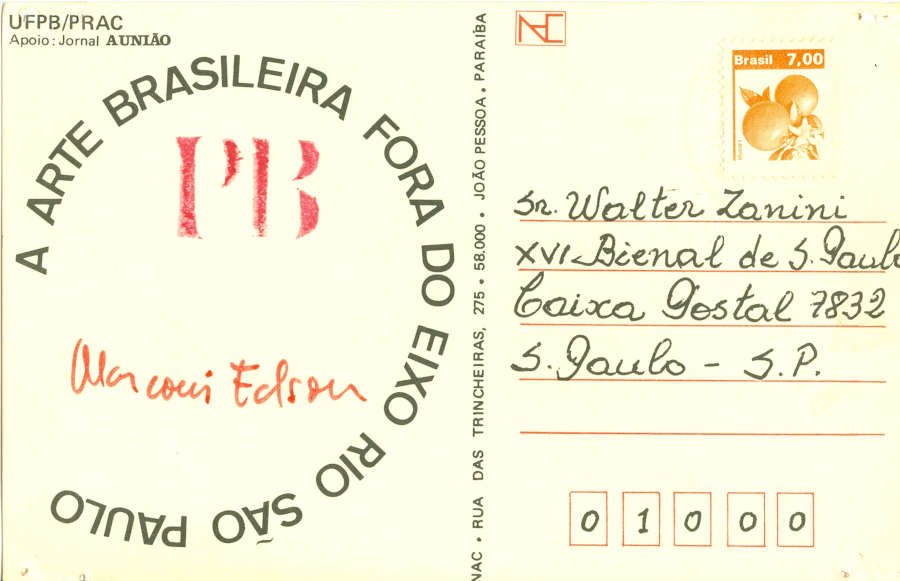 UFPB/PRAC
Apoio: Jornal A UNIÃO
A ARTE BRASILEIRA FORA DO EIXO RIO SÃO PAULO
PB
Marconi Edson
NAC • RUA DAS TRINCHEIRAS, 275 • 58.000 • JOÃO PESSOA • PARAÍBA
NAC
Brasil 7,00
Sr. Walter Zanini
XVI Bienal de S. Paulo
Caixa Postal 7832
S. Paulo - S.P.
0 1 0 0 0